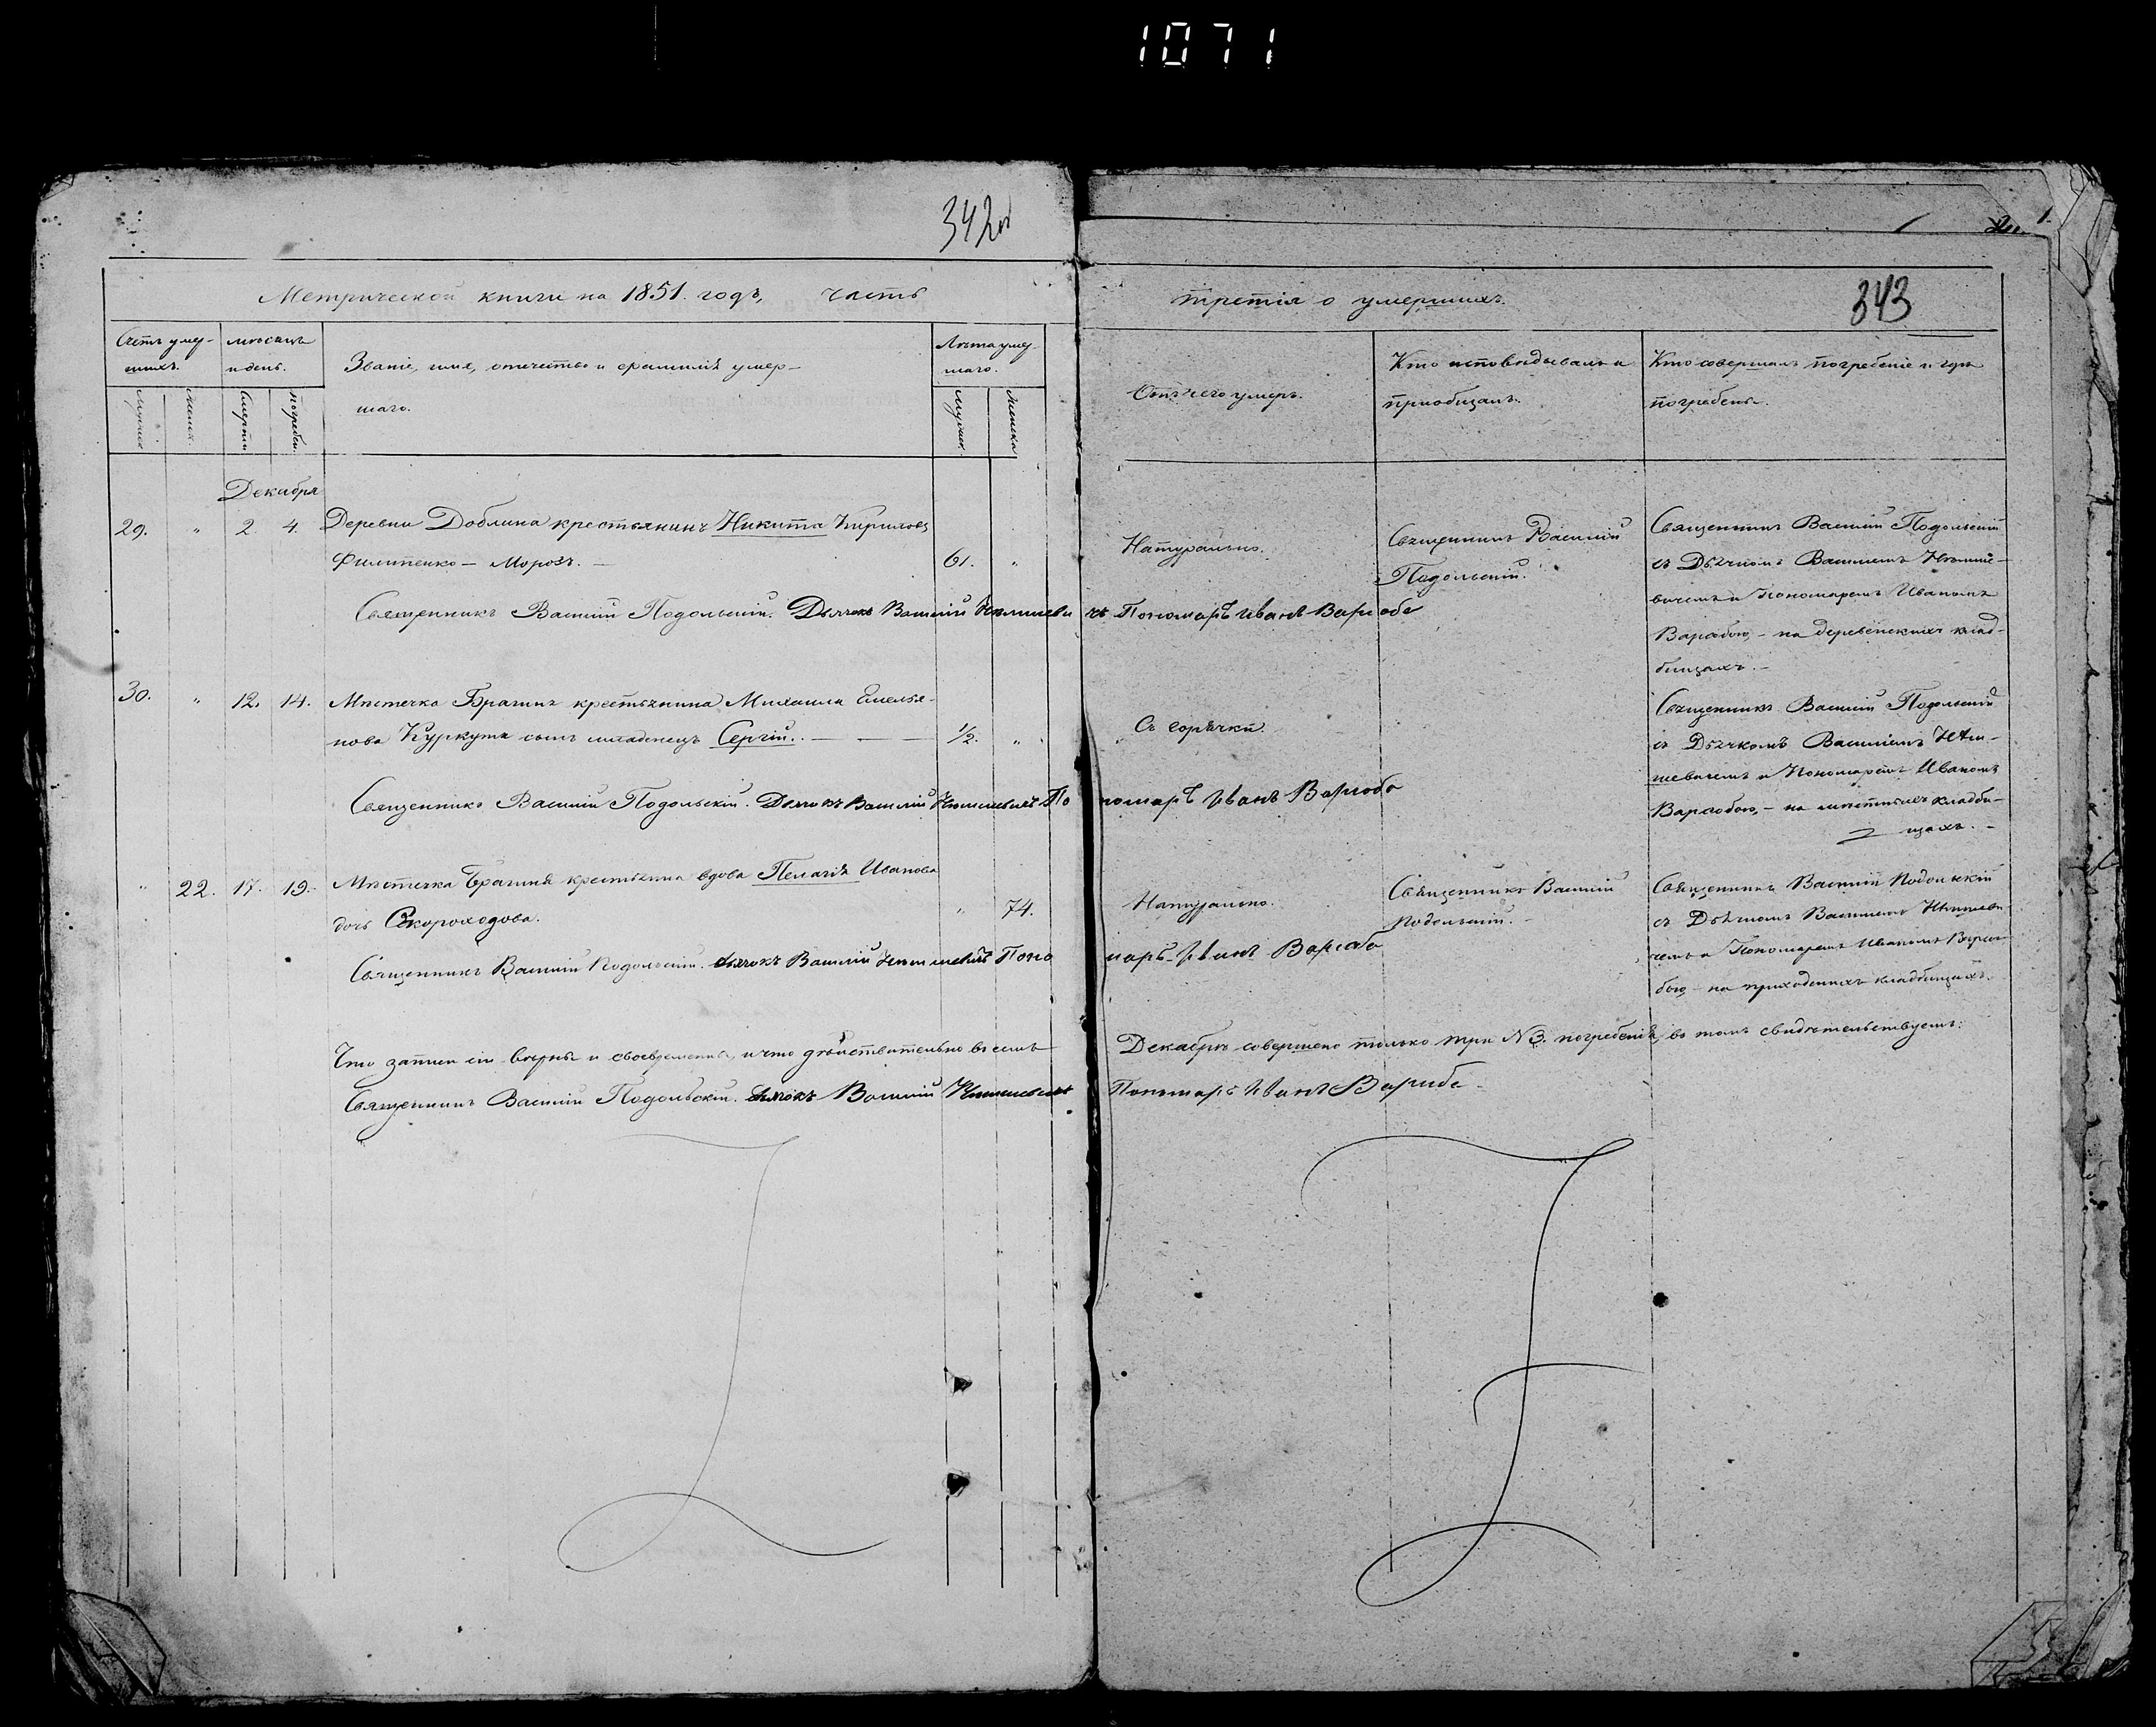 1071
342об
343
Метрической книги на 1851. годъ, часть
третія о умершихъ.
Счетъ умер-
шихъ.
мѣсяцъ
и день.
Званіе, имя, отчество и фамилія умер-
шаго.
Лѣта умер-
шаго.
Отъ чего умеръ.
Кто исповѣдывалъ и
пріобщалъ.
Кто совершалъ погребеніе и гдѣ
погребены.
Мужеск.
Женск.
Смерти
погребен.
Мужеск.
Женска
Декабря
29. " 2. 4. Деревни Доблина крестьянинъ Никита Кириловъ
Филипенко – Морозъ. – 61. "
Натурально.
Священникъ Василій
Подольскій.
Священникъ Василій Подольскій
съ Дьячкомъ Василіемъ
вичемъ и Пономаремъ Иваномъ
Варавою, – на деревенскихъ клад-
бищахъ. –
Священникъ Василій Подольскій. Дьячокъ Василій Пономарь Иванъ
30. " 12. 14. Мѣстечка Брагинъ крестьянина Михаила Емелья-
нова Куркута сынъ младенецъ Сергій. – 1/2. "
Съ горячки.
Священникъ Василій Подольскій
съ Дьячкомъ Василіемъ
шевичемъ и Пономаремъ Иваномъ
на мѣстныхъ кладби-
щахъ. –
Священникъ Василій Подольскій. Дьячокъ Василій Пономарь Иванъ
" 22. 17. 19. Мѣстечка Брагиня крестьянка вдова Пелагія Иванова
дочь Скороходова. " 74.
Натурально.
Священникъ Василій
Подольскій. –
Священникъ Василій Подольскій
съ Дьячкомъ Василіемъ
чемъ и Пономаремъ Иваномъ
бою, – на приходскихъ кладбищахъ.
Священникъ Василій Подольскій. Дьячокъ Василій Пономарь Иванъ
Что записи сіи вѣрны и своевременны, и что дѣйствительно въ семъ Декабрѣ совершено только три № 3. погребенія, въ томъ свидѣтельствуемъ:
Священникъ Василій Подольскій. Дьячокъ Василій Пономарь Иванъ